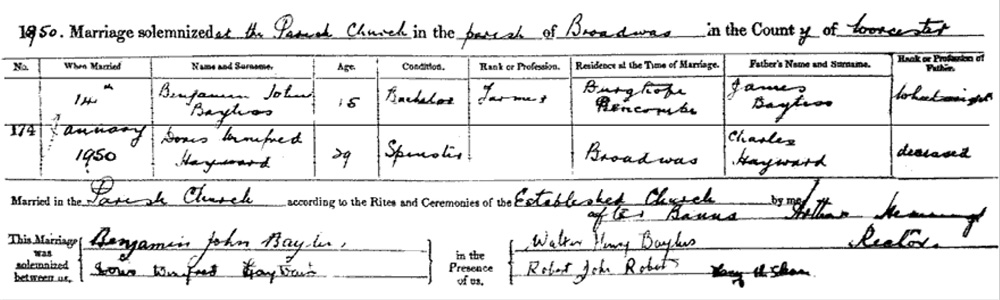 1950. Marriage solemnized at the Parish Church in the parish of Broadwas in the County of Worcester
No. When Married Name and Surname. Age. Condition. Rank or Profession. Residence at the Time of Marriage. Father's Name and Surname. Rank or Profession of Father.
14th Benjamin John Bayliss Bachelor Farmer Burghope Pencombe James Bayliss Wheelwright
174 January 1950 Doris Winifred Hayward 29 Spinster Broadwas Charles Hayward deceased
Married in the Parish Church according to the Rites and Ceremonies of the Established Church after Banns by me, Rector.
This Marriage was solemnized between us, Benjamin John Bayliss, Doris Winifred Hayward in the Presence of us. Walter Henry Bayliss Robert John Roberts